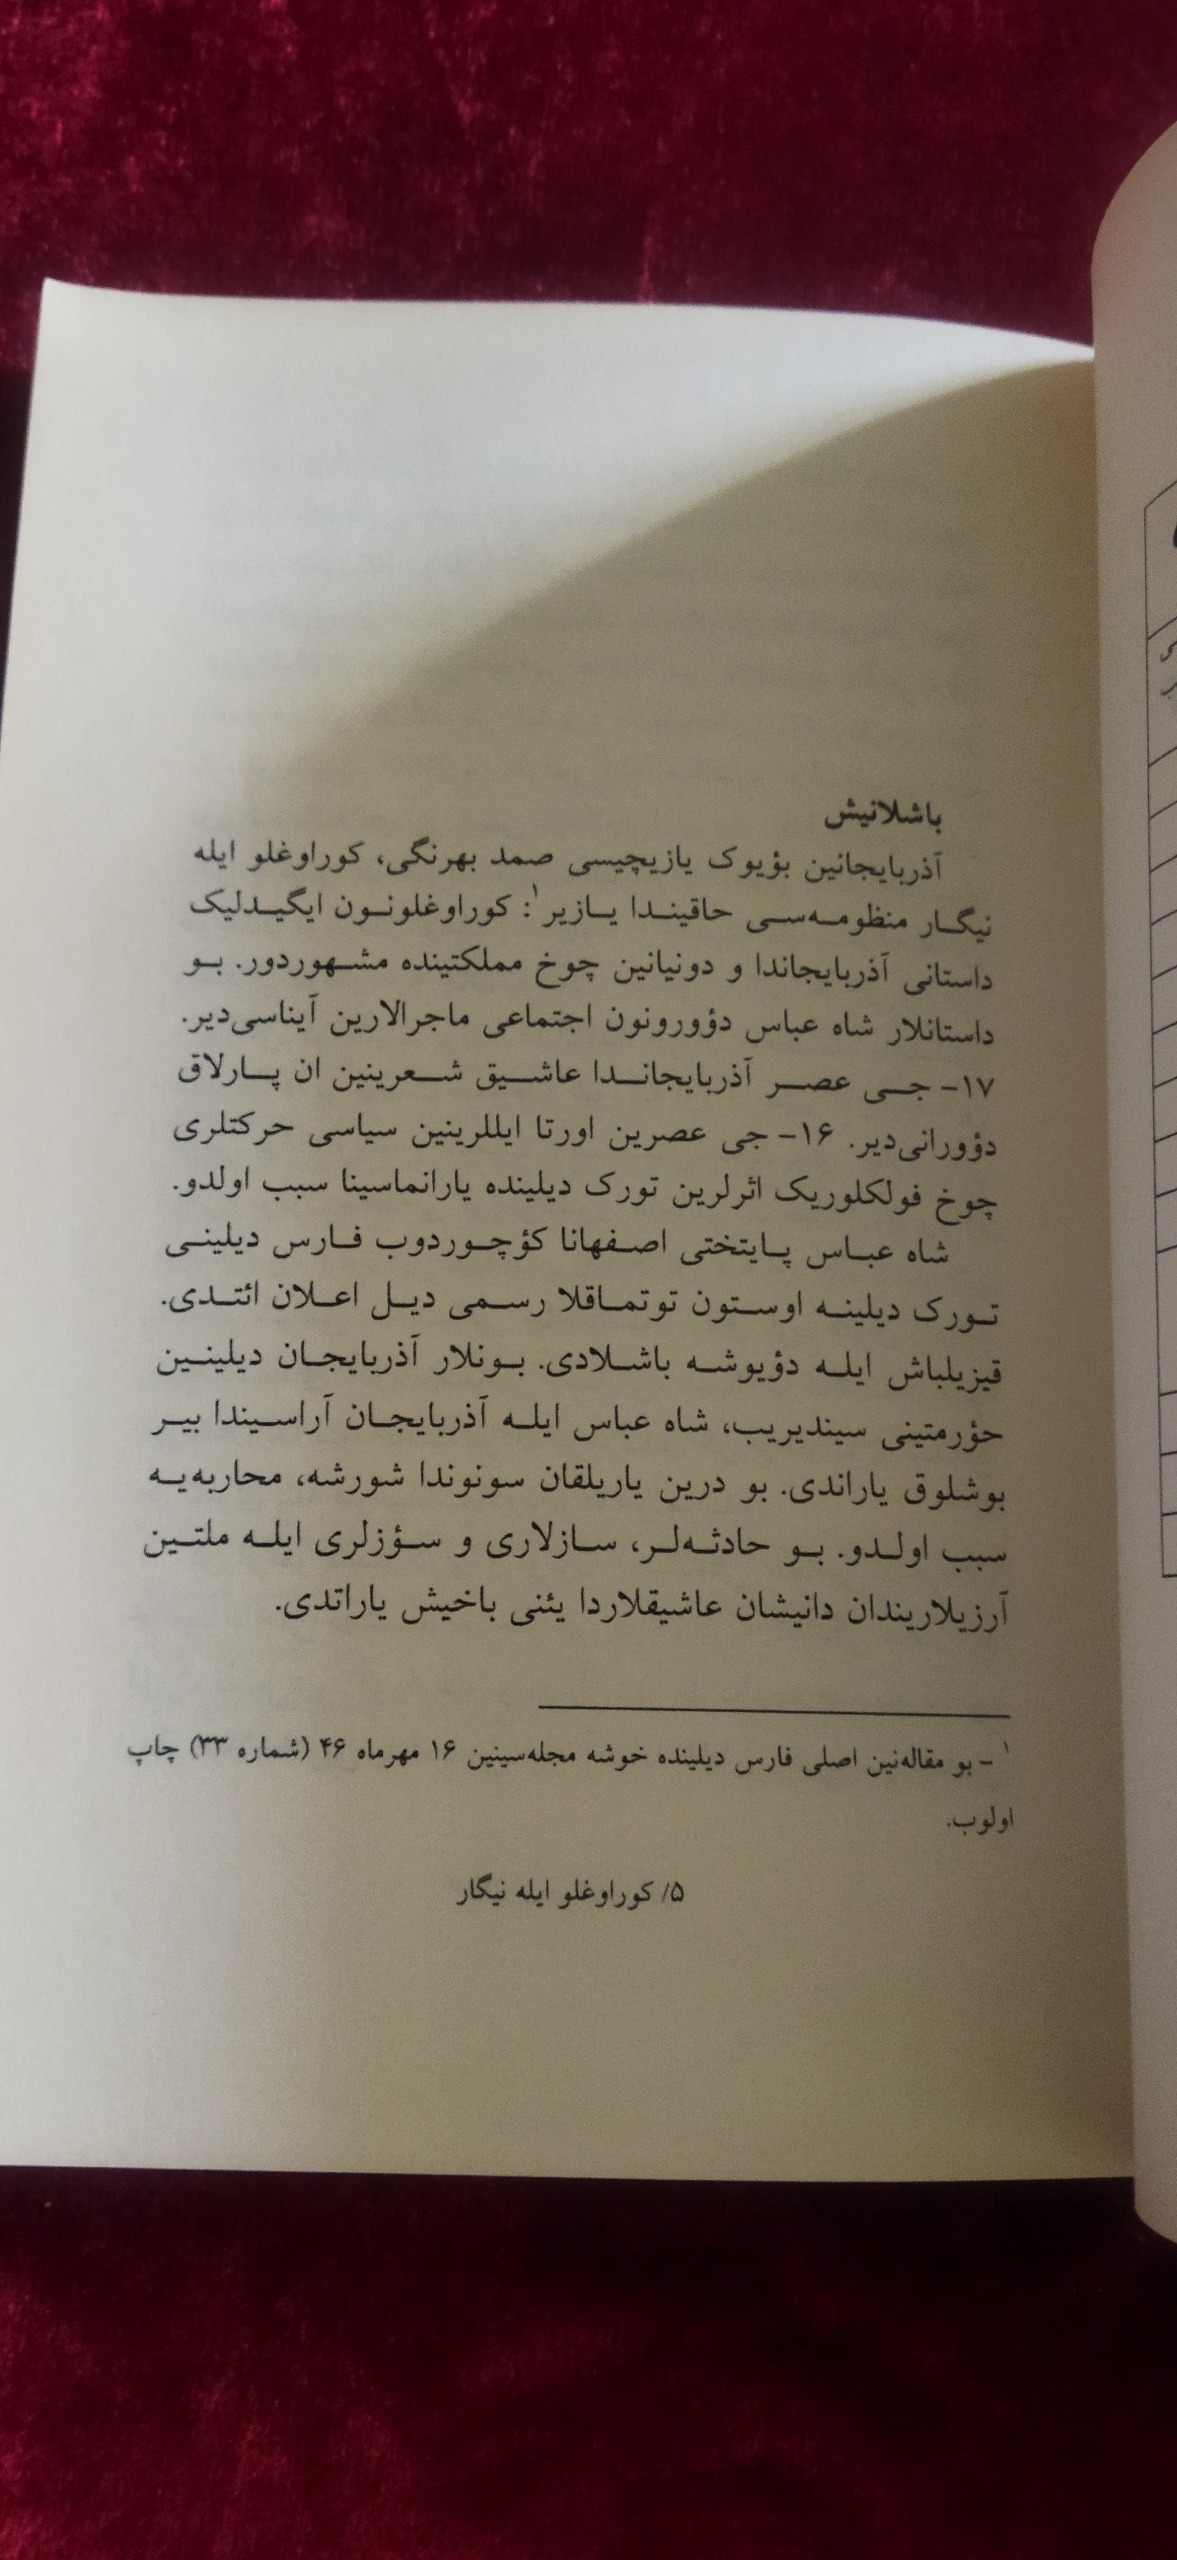 باشلانیش
آذربایجانین بؤیوک یازیچیسی صمد بهرنگی، کوراوغلو ایله
نیگار منظومه‌سی حاقیندا یازیر۱: کوراوغلونون ایگیدلیک
داستانی آذربایجاندا و دونیانین چوخ مملکتینده مشهوردور. بو
داستانلار شاه عباس دؤورونون اجتماعی ماجرالارین آیناسی‌دیر.
۱۷- جی عصر آذربایجاندا عاشیق شعرینین ان پارلاق
دؤورانی‌دیر. ۱۶- جی عصرین اورتا ایللرینین سیاسی حرکتلری
چوخ فولکلوریک اثرلرین تورک دیلینده یارانماسینا سبب اولدو.
شاه عباس پایتختی اصفهانا کؤچوردوب فارس دیلینی
تورک دیلینه اوستون توتماقلا رسمی دیل اعلان ائتدی.
قیزیلباش ایله دؤیوشه باشلادی. بونلار آذربایجان دیلینین
حؤرمتینی سیندیریب، شاه عباس ایله آذربایجان آراسیندا بیر
بوشلوق یاراندی. بو درین یاریلقان سونوندا شورشه، محاربه‌یه
سبب اولدو. بو حادثه‌لر، سازلاری و سؤزلری ایله ملتین
آرزیلاریندان دانیشان عاشیقلاردا یئنی باخیش یاراتدی.
۱- بو مقاله‌نین اصلی فارس دیلینده خوشه مجله‌سینین ۱۶ مهرماه ۴۶ (شماره ۳۳) چاپ
اولوب.
۵/ کوراوغلو ایله نیگار